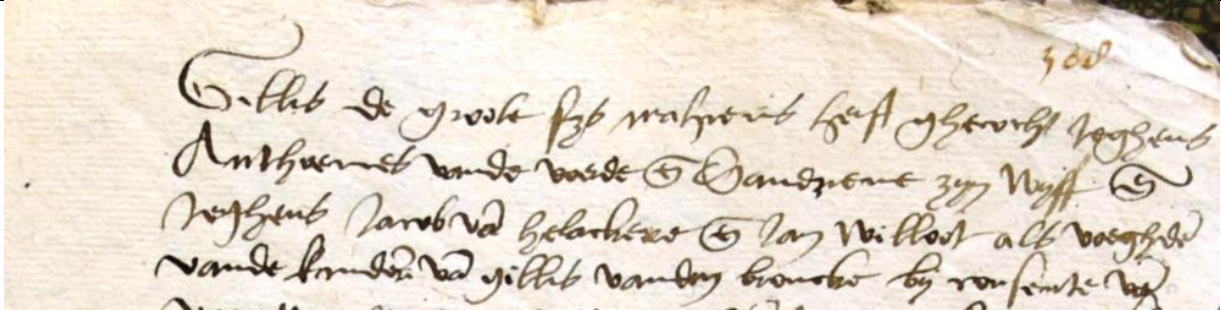 308
Gillis de groote fs malpeus heeft ghecocht jeghens
Anthoenes vande voorde en Sandrine zijn wijff en
jeghens Jacob van helackere en Jan Willoot als voeghde
vande kinderen van gillis vanden broucke by consente van